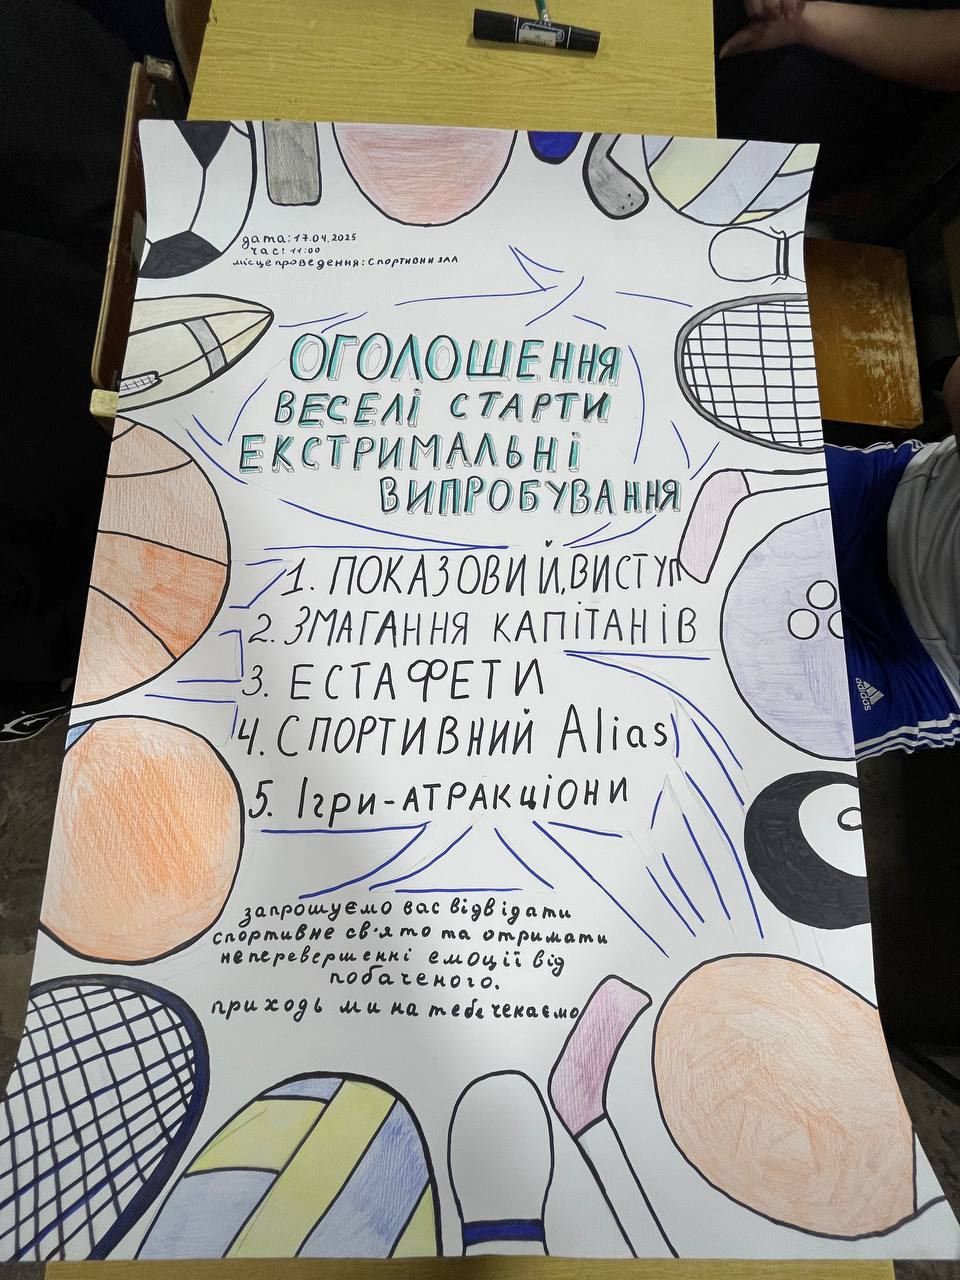 дата: 17.04.2025
час: 11:00
місце проведення: спортивни зал
ОГОЛОШЕННЯ
ВЕСЕЛІ СТАРТИ
ЕКСТРИМАЛЬНІ
ВИПРОБУВАННЯ
1. ПОКАЗОВИЙ, ВИСТУП
2. ЗМАГАННЯ КАПІТАНІВ
3. ЕСТАФЕТИ
4. СПОРТИВНИЙ Alias
5. Ігри-АТРАКЦІОНИ
запрошуємо вас відвідати
спортивне св'ято та отримати
неперевершенні емоції від
побаченого.
приходь ми на тебе чекаємо
adidas